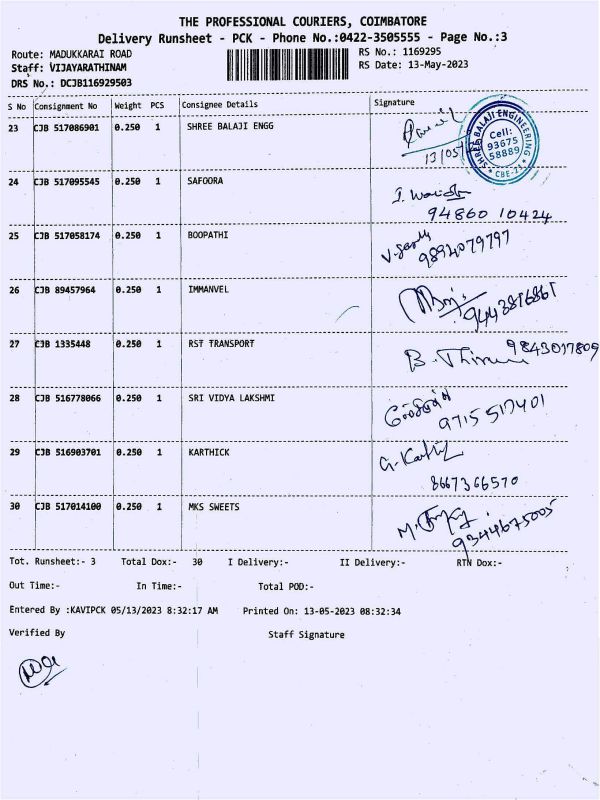 THE PROFESSIONAL COURIERS, COIMBATORE
Delivery Runsheet - PCK - Phone No.:0422-3505555 - Page No.:3
Route: MADUKKARAI ROAD RS No.: 1169295
Staff: VIJAYARATHINAM RS Date: 13-May-2023
DRS No.: DCJB116929503
S No Consignment No Weight PCS Consignee Details Signature
23 CJB 517086901 0.250 1 SHREE BALAJI ENGG
13/05
SHREE BALAJI ENGINEERING
Cell:
93675
58889
* CBE-23 *
24 CJB 517095545 0.250 1 SAFOORA
94860 10424
25 CJB 517058174 0.250 1 BOOPATHI
9894079797
26 CJB 89457964 0.250 1 IMMANVEL
9443816861
27 CJB 1335448 0.250 1 RST TRANSPORT
9843017809
28 CJB 516778066 0.250 1 SRI VIDYA LAKSHMI
9715517401
29 CJB 516903701 0.250 1 KARTHICK
G. Karthi
8667366570
30 CJB 517014100 0.250 1 MKS SWEETS
9344675005
Tot. Runsheet:- 3 Total Dox:- 30 I Delivery:- II Delivery:- RTN Dox:-
Out Time:- In Time:- Total POD:-
Entered By :KAVIPCK 05/13/2023 8:32:17 AM Printed On: 13-05-2023 08:32:34
Verified By Staff Signature